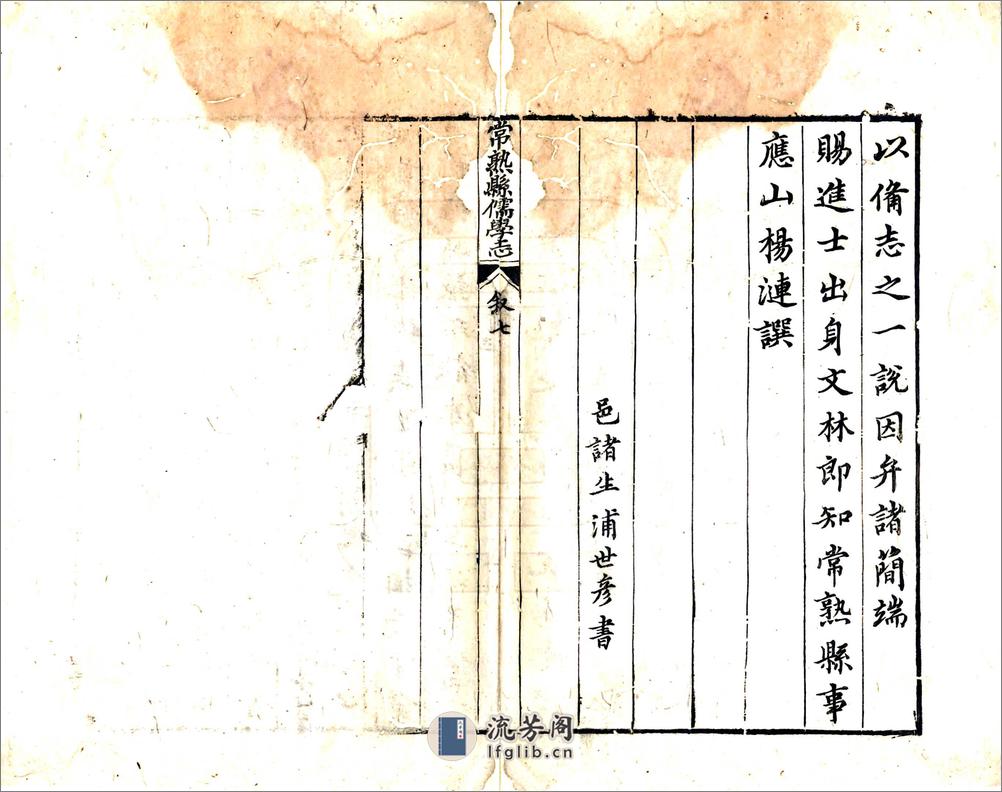 以備志之一說因弁諸簡端
賜進士出身文林郎知常熟縣事
應山楊漣譔
邑諸生浦世彥書
常熟縣儒學志
叙七
流芳阁
lfglib.cn